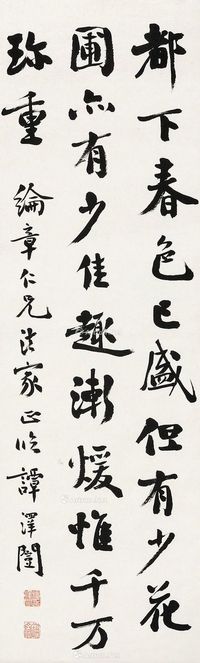 都下春色已盛但有少花
圃亦有少佳趣渐煖惟千万
珍重
纶章仁兄法家正临谭泽闿